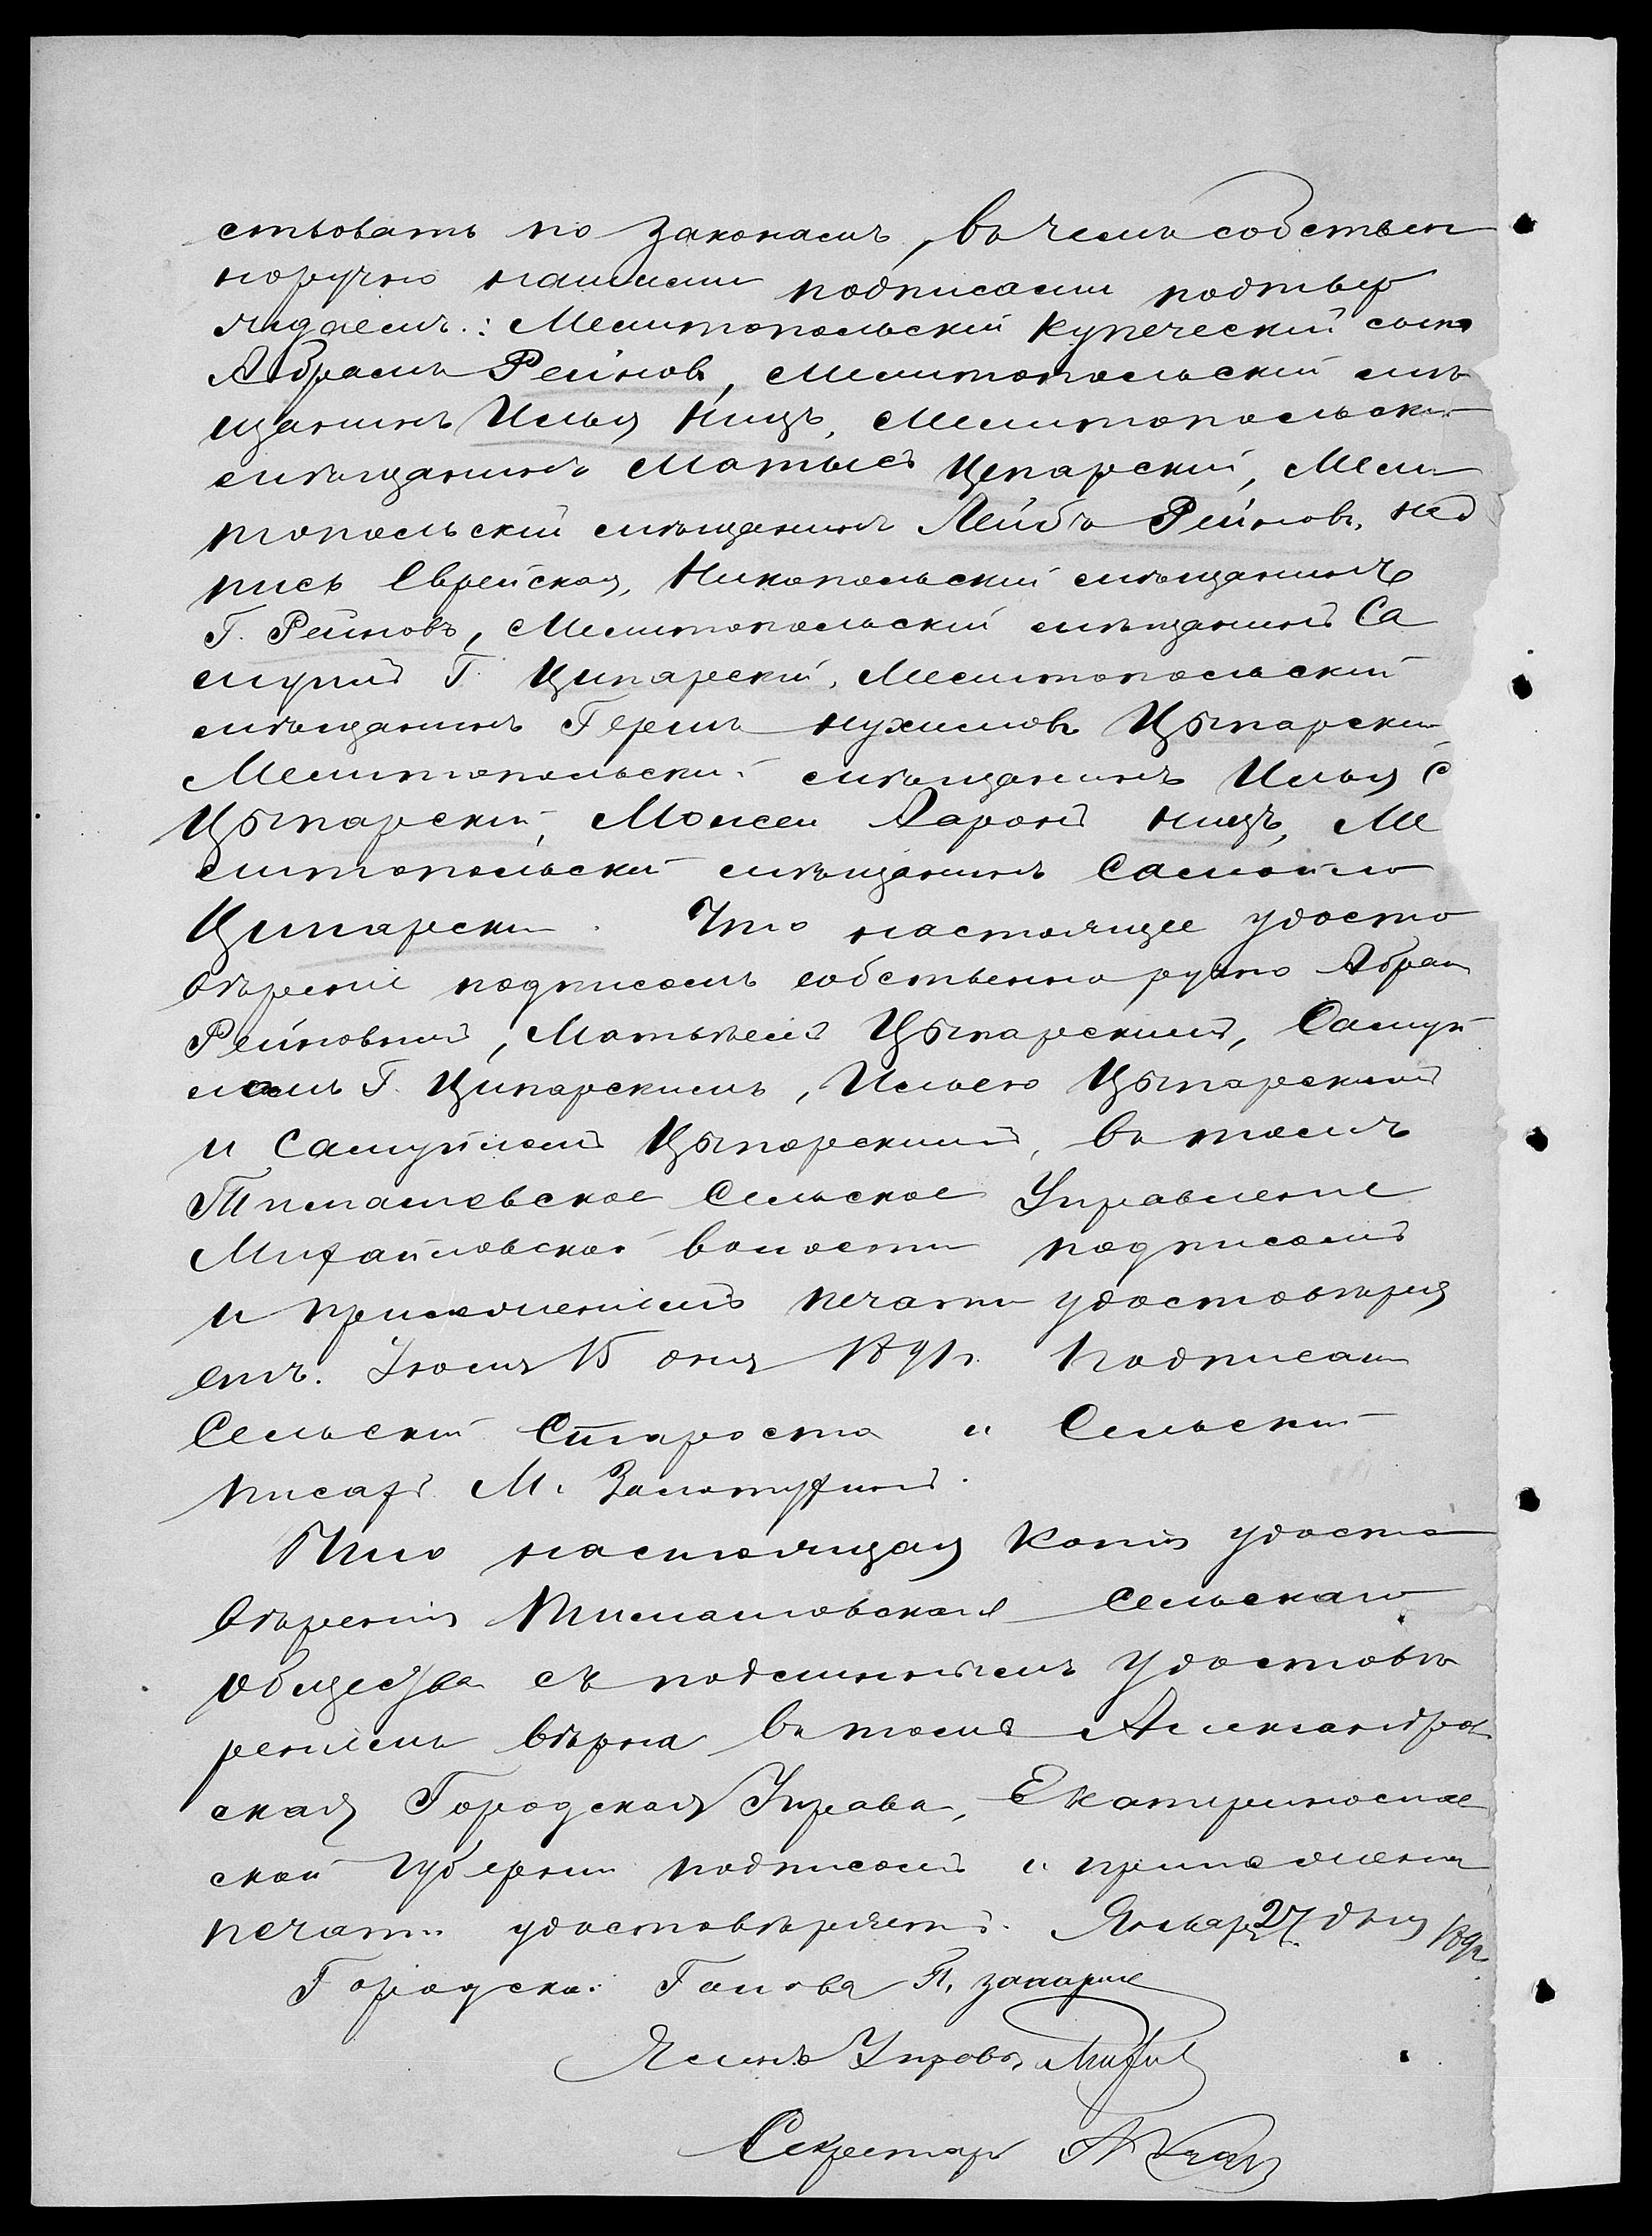 ствовать по законамъ, въ чемъ собствен
норучно нашими подписами подтвер
ждаемъ.: Мелитопольскій купеческій сынъ
Абрамъ Рейновъ, Мелитопольскій мѣ
щанинъ Илья Ницъ, Мелитопольскій
мѣщанинъ Матысъ Цепарскій, Мели
топольскій мѣщанинъ Лейбъ Рейновъ, над
пись Еврейская, Никопольскій мѣщанинъ
Г. Рейновъ, Мелитопольскій мѣщанинъ Са
муилъ Г. Ципарскій, Мелитопольскій
мѣщанинъ Гершъ Нухимовъ Цыпарскій
Мелитопольскій мѣщанинъ Илья С
Цыпарскій, Моисей Ааронъ Ницъ, Ме
литопольскій мѣщанинъ Самойло
Ципарскій. Что настоящее удосто
вѣреніе подписомъ собственно ручно Абрам
Рейновымъ, Матвеемъ Цыпарскимъ, Самуй
ломъ Г. Ципарскимъ, Ильею Цыпарскимъ
и Самуйломъ Цыпарскимъ, въ томъ
Тимашовское Сельское Управленіе
Михайловской волости подписомъ
и приложеніемъ печати удостовѣря
етъ. Іюля 15 дня 1891 г. Подписали
Сельскій Староста и Сельскій
писарь М. Золотухинъ.
Что настоящая копія удосто
вѣренія Тимашовскаго Сельскаго
общества съ подлиннымъ удостовѣ
реніемъ вѣрна въ томъ Александров
ская Городская Управа, Екатеринослав
ской губерніи подписомъ и приложеніемъ
печати удостовѣряетъ. Января 27 дня
Городской Голова П. Захарин
Членъ Управы
Секретарь